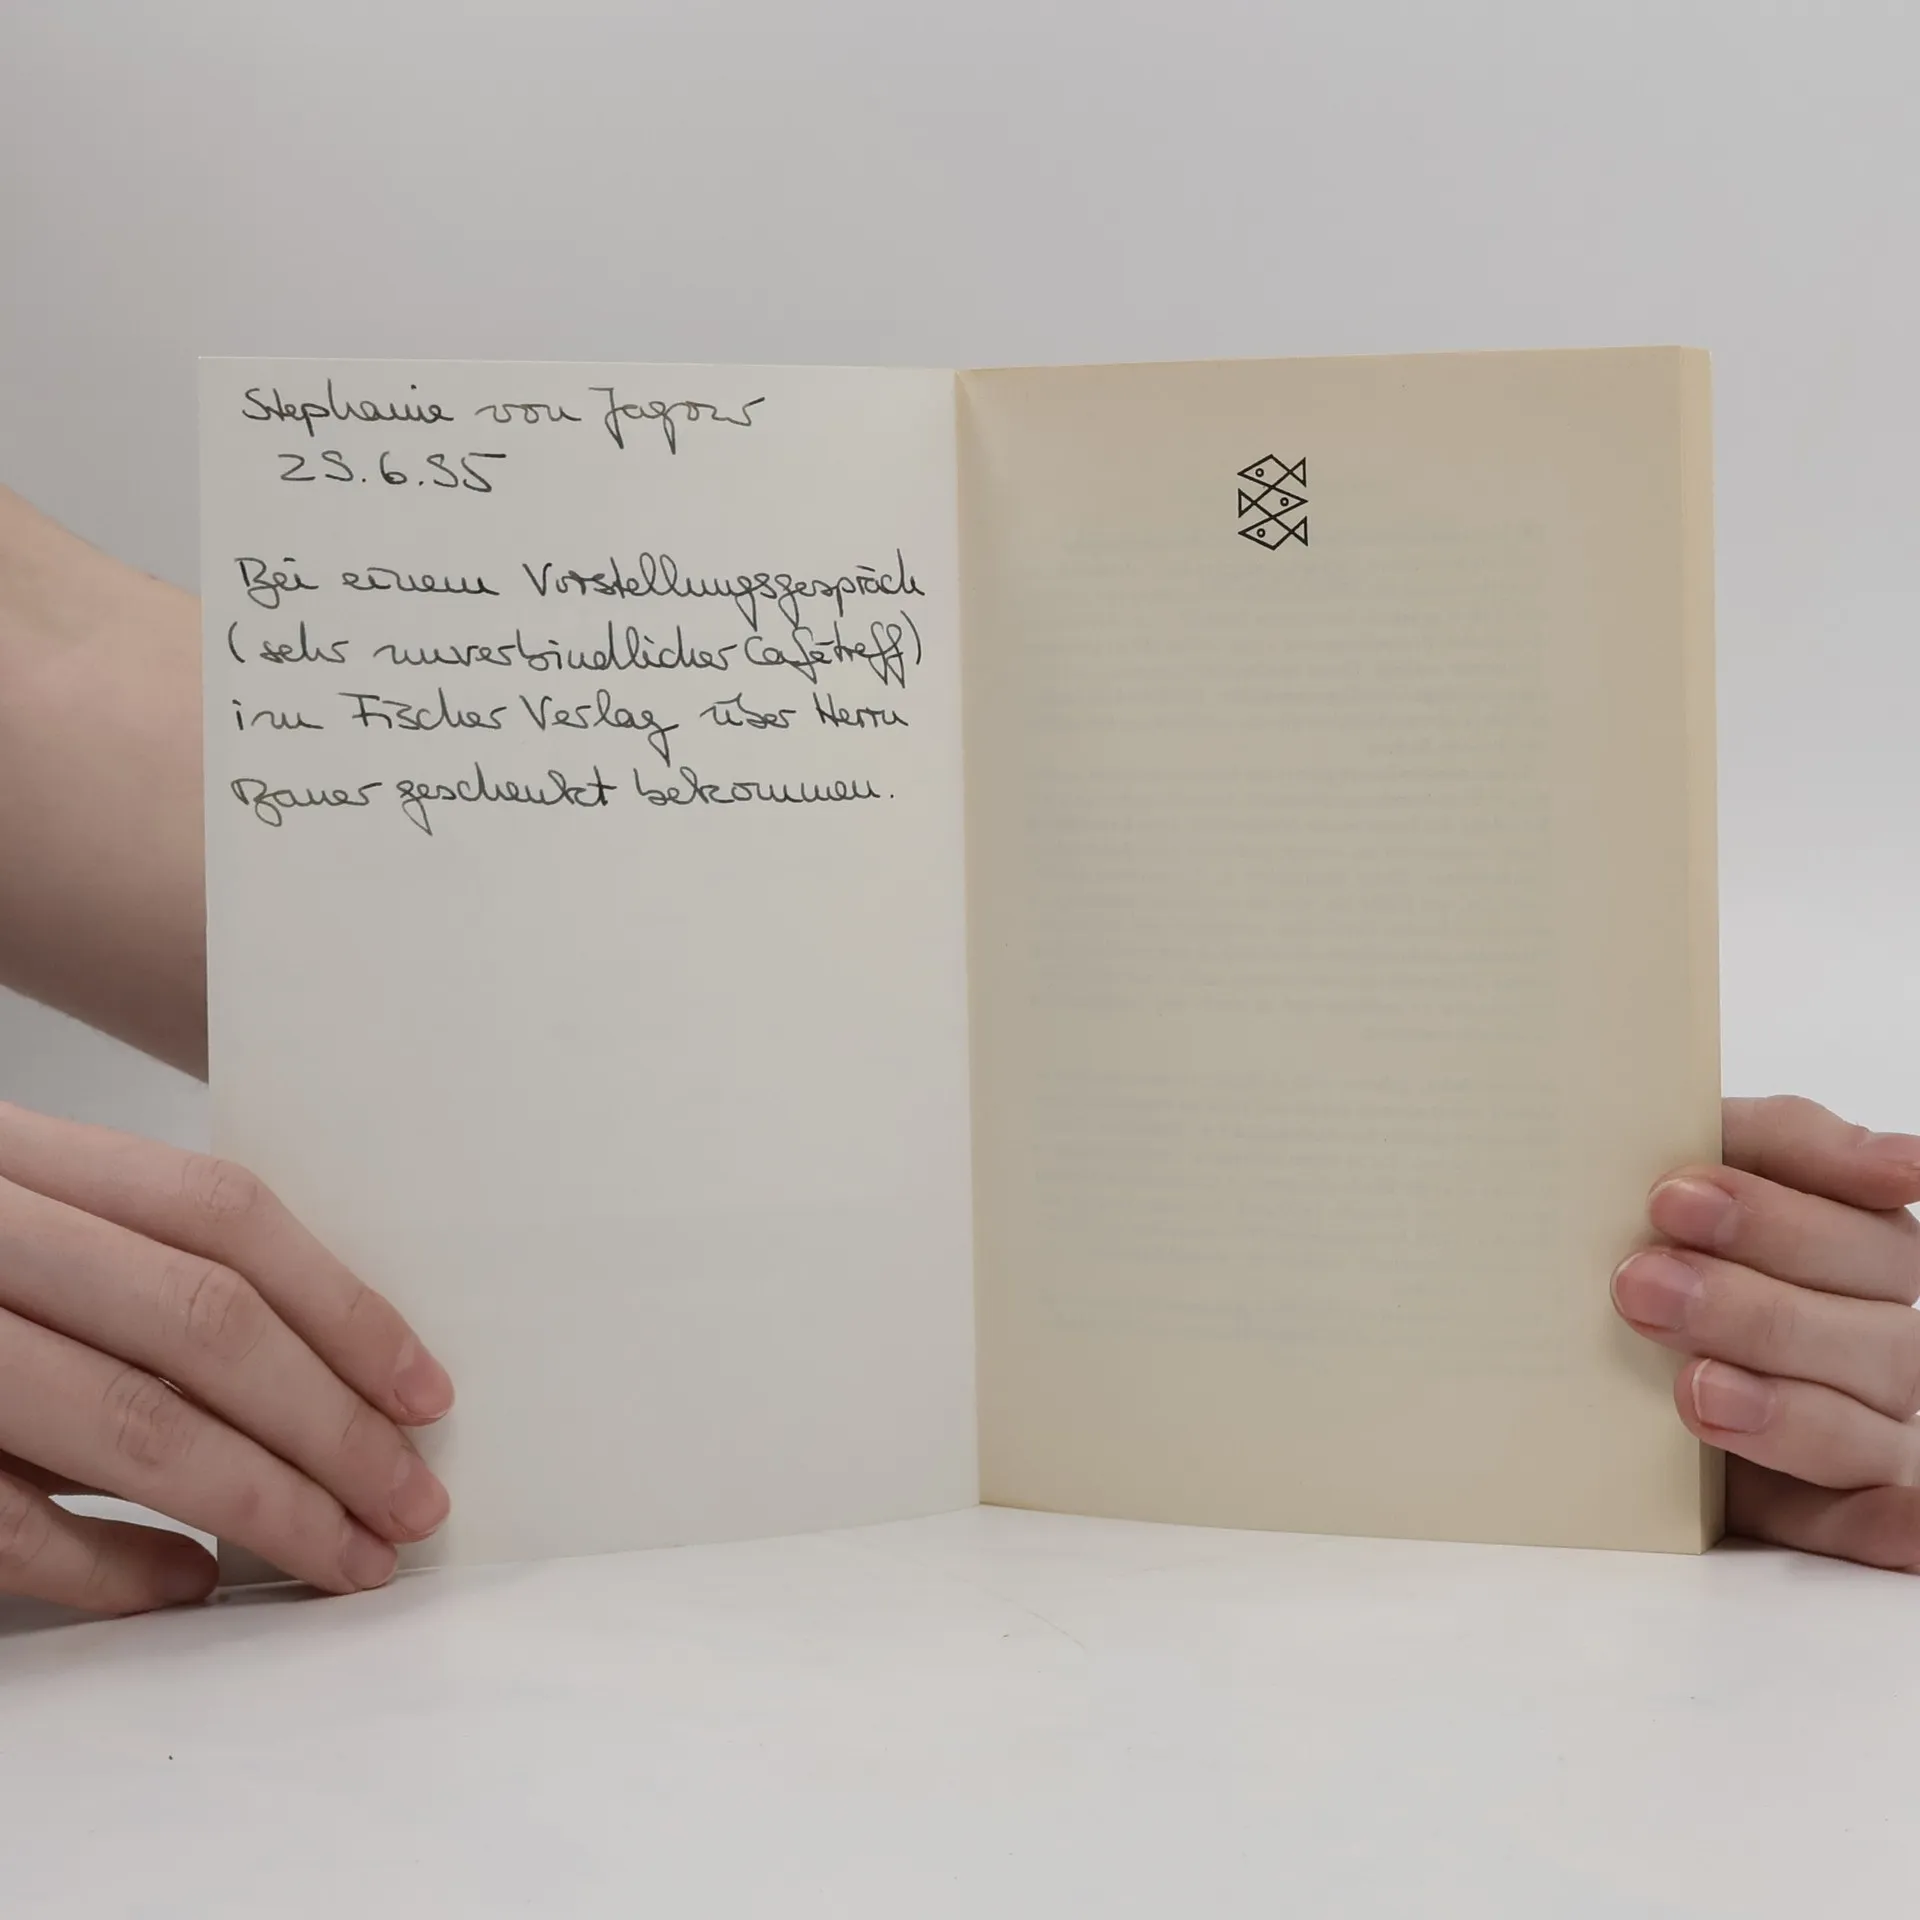 Stephanie von Jagow
29.6.95
Bei einem Vorstellungsgespräch
(sehr unverbindlicher Cafétreff)
im Fischer Verlag über Herrn
Bauer geschenkt bekommen.